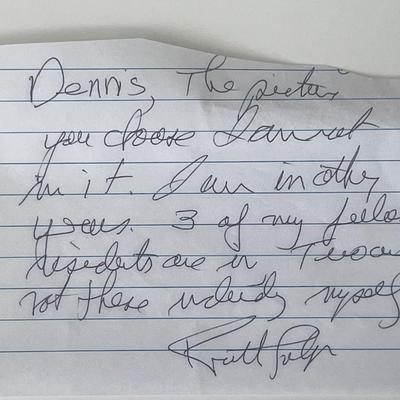 Dennis, The picture
you choose I am not
in it. I am in other
years. 3 of my fellow
residents are in
not these including myself